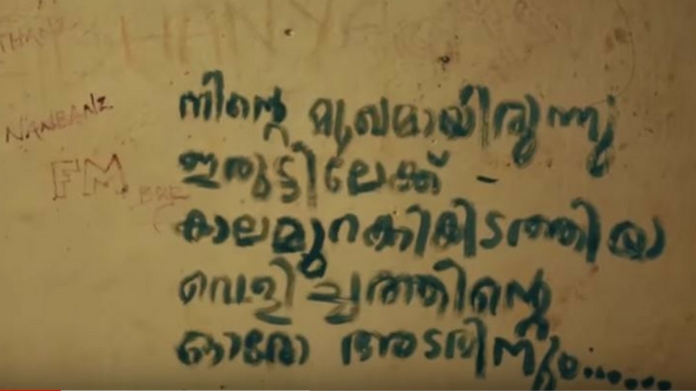 HANYA
NANBANZ
FM
നിന്റെ മുഖമായിരുന്നു
ഇരുട്ടിലേക്ക് -
കാലമുറക്കികിടത്തിയ
വെളിച്ചത്തിന്റെ
ഓരോ അടരിനും......